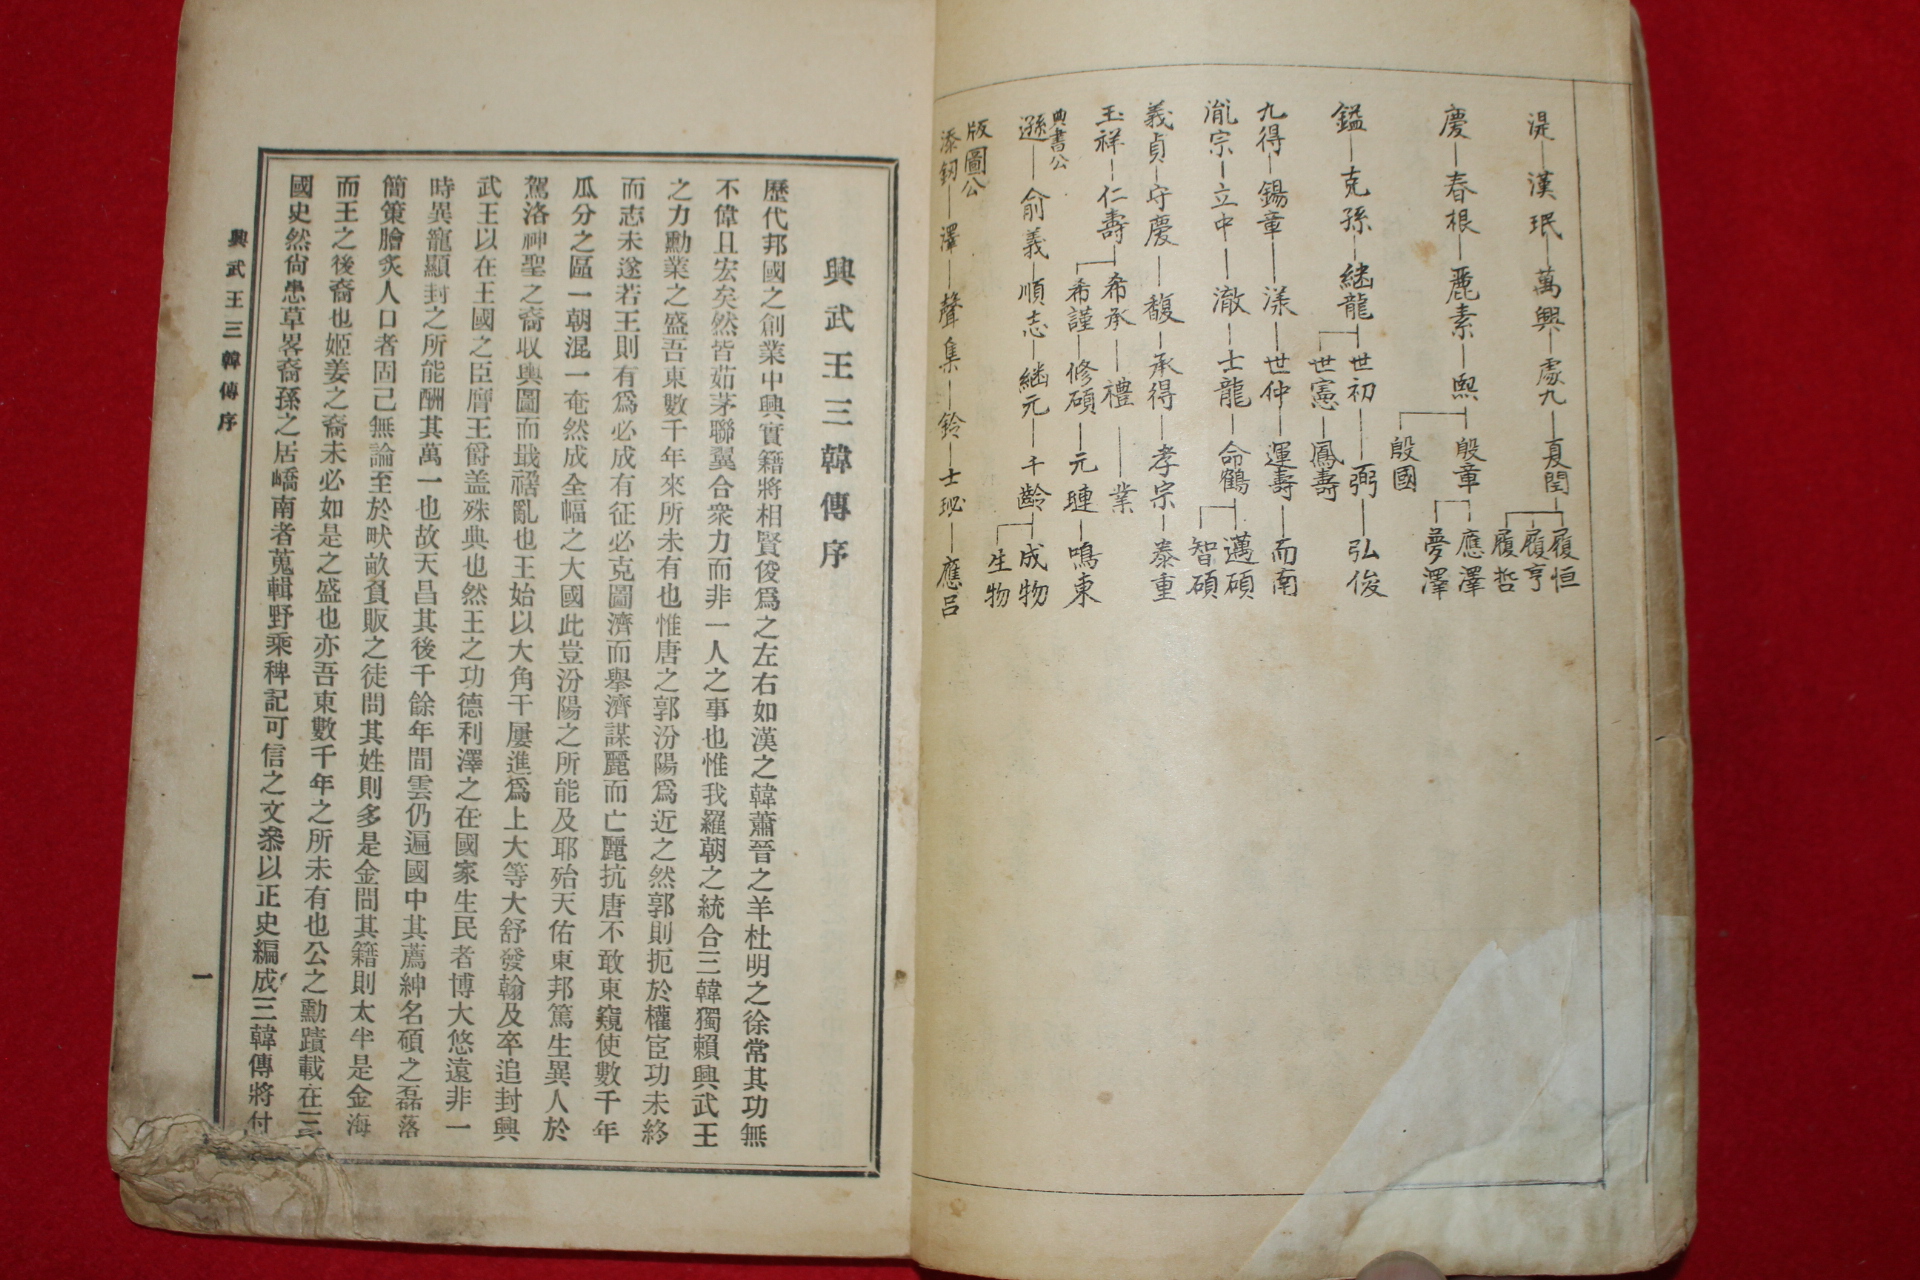 湜―漢珉―萬興―處九―夏閏―履恒
履亨
履哲
慶―春根―麗素―煕―殷章―應澤
夢澤
殷國
鎰―克孫―継龍―世初―弼―弘俊
世憲―鳳壽
九得―錫章―漾―世仲―運壽―而南
胤宗―立中―澈―士龍―命鶴―邁碩
智碩
義貞―守慶―馥―承得―孝宗―泰重
玉祥―仁壽―希承―禮―業
希謹―修碩―元璉―鳴東
典書公
遜―俞義―順志―継元―千齡―成物
生物
版圖公
添釰―澤―聲集―鈴―士珌―應呂
興武王三韓傳序
歷代邦國之創業中興實籍將相賢俊爲之左右如漢之韓蕭晉之羊杜明之徐常其功無
不偉且宏矣然皆茹茅聯翼合衆力而非一人之事也惟我羅朝之統合三韓獨賴興武王
之力勳業之盛吾東數千年來所未有也惟唐之郭汾陽爲近之然郭則扼於權宦功未終
而志未遂若王則有爲必成有征必克圖濟而擧濟謀麗而亡麗抗唐不敢東窺使數千年
瓜分之區一朝混一奄然成全幅之大國此豈汾陽之所能及耶殆天佑東邦篤生異人於
駕洛神聖之裔収輿圖而戡禍亂也王始以大角干屢進爲上大等大舒發翰及卒追封興
武王以在王國之臣膺王爵盖殊典也然王之功德利澤之在國家生民者博大悠遠非一
時異寵顯封之所能酬其萬一也故天昌其後千餘年間雲仍遍國中其薦紳名碩之磊落
簡策膾炙人口者固已無論至於畎畝負販之徒問其姓則多是金問其籍則太半是金海
而王之後裔也姬姜之裔未必如是之盛也亦吾東數千年之所未有也公之勳蹟載在三
國史然尙患草畧裔孫之居嶠南者蒐輯野乘稗記可信之文叅以正史編成三韓傳將付
興武王三韓傳序
一